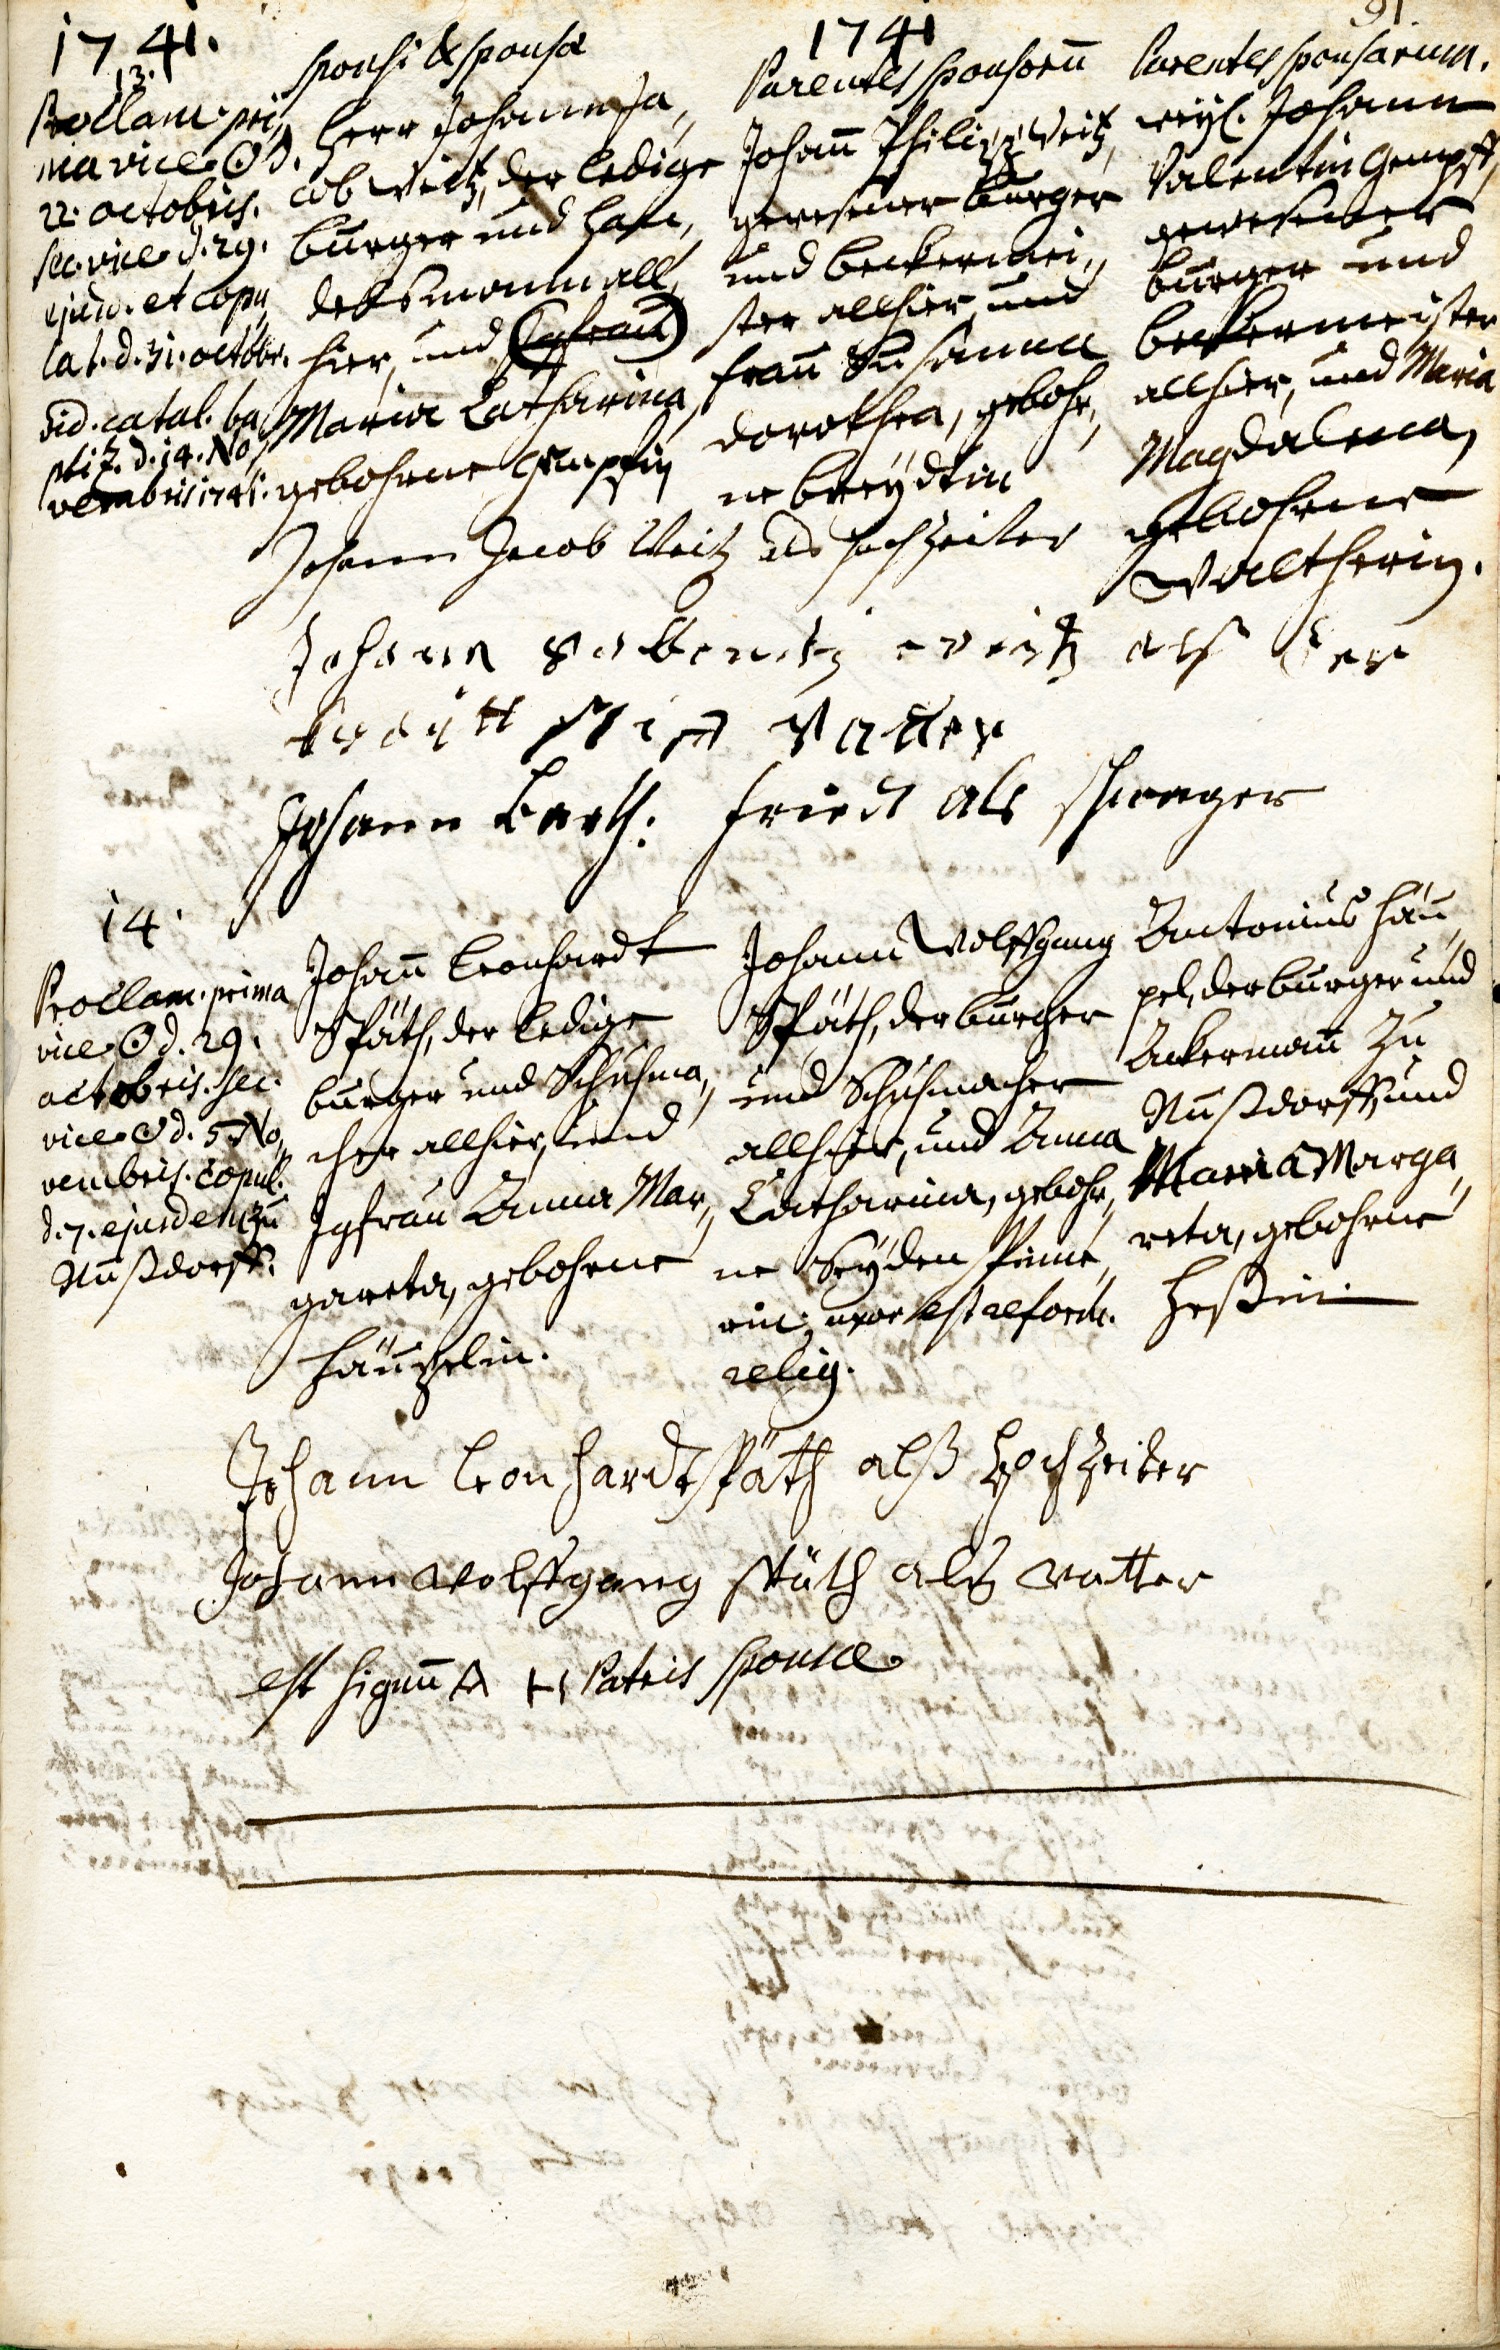 1741.
1741
91
13.
Proclam. pri„
ma vice ☉ d.
22. octobris.
sec. vice d. 29.
ejusd. et copu„
lat. d. 31. octobr.
vid. catal. ba„
ptiz. d. 14. No„
vembris 1741.
sponsi & sponsæ
Herr Johann Ja„
cob Veitz, der ledige
burger und han„
delsmann all„
hier, und (Jgfrau)
Maria Catharina,
gebohrne Gempfin
Parentes sponsorū
Johan̄ Philipp Veitz,
gewesener burger
und beckermei„
ster allhier, und
frau Susanna
Dorothea, gebohr„
ne breydtin
Parentes sponsarum.
weyl. Johann
Valentin Gempff,
gewesener
burger und
beckermeister
allhier, und Maria
Magdalena,
gebohrne
Waltherin.
Johann Jacob Veitz als hochzeiter
Johann veitz als der
stief Vatter
Johann Barth. friedt als schwager
14.
Proclam. prima
vice ☉ d. 29.
octobris. sec.
vice ☉ d. 5. No„
vembris. copul.
d. 7. ejusdem zu
Nußdorff.
Johan̄ Leonhardt
Späth, der ledige
burger und Schuhma„
cher allhier, und
Jgfrau Anna Mar„
gareta, gebohrne
Häuppelin.
Johann Wolffgang
Späth, der burger
und Schuhmacher
allhier, und Anna
Catharina, gebohr„
ne Seyden
rin; uxor est reform.
relig.
Antonius Häu„
pel, der burger und
Ackerman̄ zu
Nußdorff, und
Maria Marga„
reta, gebohrne
Heßin.
Johann Leonhardt Späth alß Hochzeiter
Johann Wolffgang Späth als vatter
est signū A H Patris sponsæ